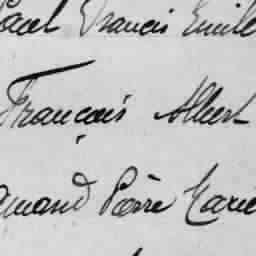 Paul Francis Emile
François Albert
Armand Pierre Marie